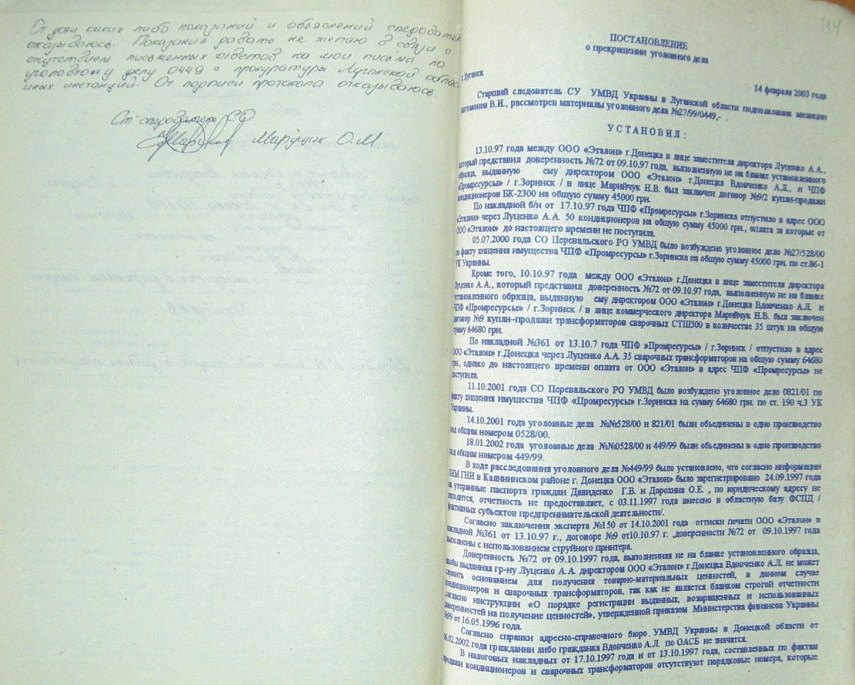 От дачи каких либо показаний и объяснений
отказываюсь. Показания давать не желаю в связи с
отсутствием письменных ответов на мои письма по
уголовному делу 0449 с прокуратуры Луганской
иных инстанций. От подписи протокола отказываюсь.
Марущак О.М
194
ПОСТАНОВЛЕНИЕ
о прекращении уголовного дела
Луганск
14 февраля 2003 года
Старший следователь СУ УМВД Украины в Луганской области подполковник милиции
В.И., рассмотрев материалы уголовного дела №27/99/0449,
У С Т А Н О В И Л :
13.10.97 года между ООО «Эталон» г.Донецка в лице заместителя директора Луценко А.А.,
который представил доверенность №72 от 09.10.97 года, выполненную не на бланке установленного
образца, выданную ему директором ООО «Эталон» г.Донецка Вдовченко А.Л., и ЧПФ
«Промресурсы» / г.Зоринск / в лице Марийчук Н.В. был заключен договор №9/2 купли-продажи
кондиционеров БК-2300 на общую сумму 45000 грн.
По накладной б/н от 17.10.97 года ЧПФ «Промресурсы» г.Зоринска отпустило в адрес ООО
«Эталон» через Луценко А.А. 50 кондиционеров на общую сумму 45000 грн., оплата за которые от
ООО «Эталон» до настоящего времени не поступила.
05.07.2000 года СО Перевальского РО УМВД было возбуждено уголовное дело №27/528/00
по факту хищения имущества ЧПФ «Промресурсы» г.Зоринска на общую сумму 45000 грн. по ст.86-1
УК Украины.
Кроме того, 10.10.97 года между ООО «Эталон» г.Донецка в лице заместителя директора
Луценко А.А., который представил доверенность №72 от 09.10.97 года, выполненную не на бланке
установленного образца, выданную ему директором ООО «Эталон» г.Донецка Вдовченко А.Л. и
ЧПФ «Промресурсы» / г.Зоринск / в лице коммерческого директора Марийчук Н.В. был заключен
договор №9 купли-продажи трансформаторов сварочных СТШ500 в количестве 35 штук на общую
сумму 64680 грн.
По накладной №361 от 13.10.7 года ЧПФ »Промресурсы» / г.Зоринск / отпустило в адрес
ООО «Эталон» г.Донецка через Луценко А.А. 35 сварочных трансформаторов на общую сумму 64680
грн., однако до настоящего времени оплата от ООО «Эталон» в адрес ЧПФ «Промресурсы» не
поступила.
11.10.2001 года СО Перевальского РО УМВД было возбуждено уголовное дело 0821/01 по
факту хищения имущества ЧПФ «Промресурсы» г.Зоринска на сумму 64680 грн. по ст. 190 ч.3 УК
Украины.
14.10.2001 года уголовные дела №№528/00 и 821/01 были объединены в одно производство
под общим номером 0528/00.
18.01.2002 года уголовные дела №№0528/00 и 449/99 были объединены в одно производство
под общим номером 449/99.
В ходе расследования уголовного дела №449/99 было установлено, что согласно информации
ГНИ в Калининском районе г. Донецка ООО «Эталон» было зарегистрировано 24.09.1997 года
на утерянные паспорта граждан Давиденко Г.В. и Дорохина О.Е. , по юридическому адресу не
находится, отчетность не предоставляет, с 03.11.1997 года внесено в областную базу ФСПД /
фиктивных субъектов предпринимательской деятельности/.
Согласно заключения эксперта №150 от 14.10.2001 года оттиски печати ООО «Эталон» в
накладной №361 от 13.10.97 г., договоре №9 от10.10.97 г. ,доверенности №72 от 09.10.1997 года
выполнены с использованием струйного принтера.
Доверенность №72 от 09.10.1997 года, выполненная не на бланке установленного образца,
якобы выданная гр-ну Луценко А.А. директором ООО «Эталон» г.Донецка Вдовченко А.Л. не может
служить основанием для получения товарно-материальных ценностей, в данном случае
кондиционеров и сварочных трансформаторов, так как не является бланком строгой отчетности
согласно инструкции «О порядке регистрации выданных, возвращенных и использованных
доверенностей на получение ценностей», утвержденной приказом Министерства финансов Украины
№99 от 16.05.1996 года.
Согласно справки адресно-справочного бюро УМВД Украины в Донецкой области от
02.2002 года гражданин либо гражданка Вдовченко А.Л. по ОАСБ не значится.
В налоговых накладных от 17.10.1997 года и от 13.10.1997 года, составленных по фактам
продажи кондиционеров и сварочных трансформаторов отсутствуют порядковые номера, которые